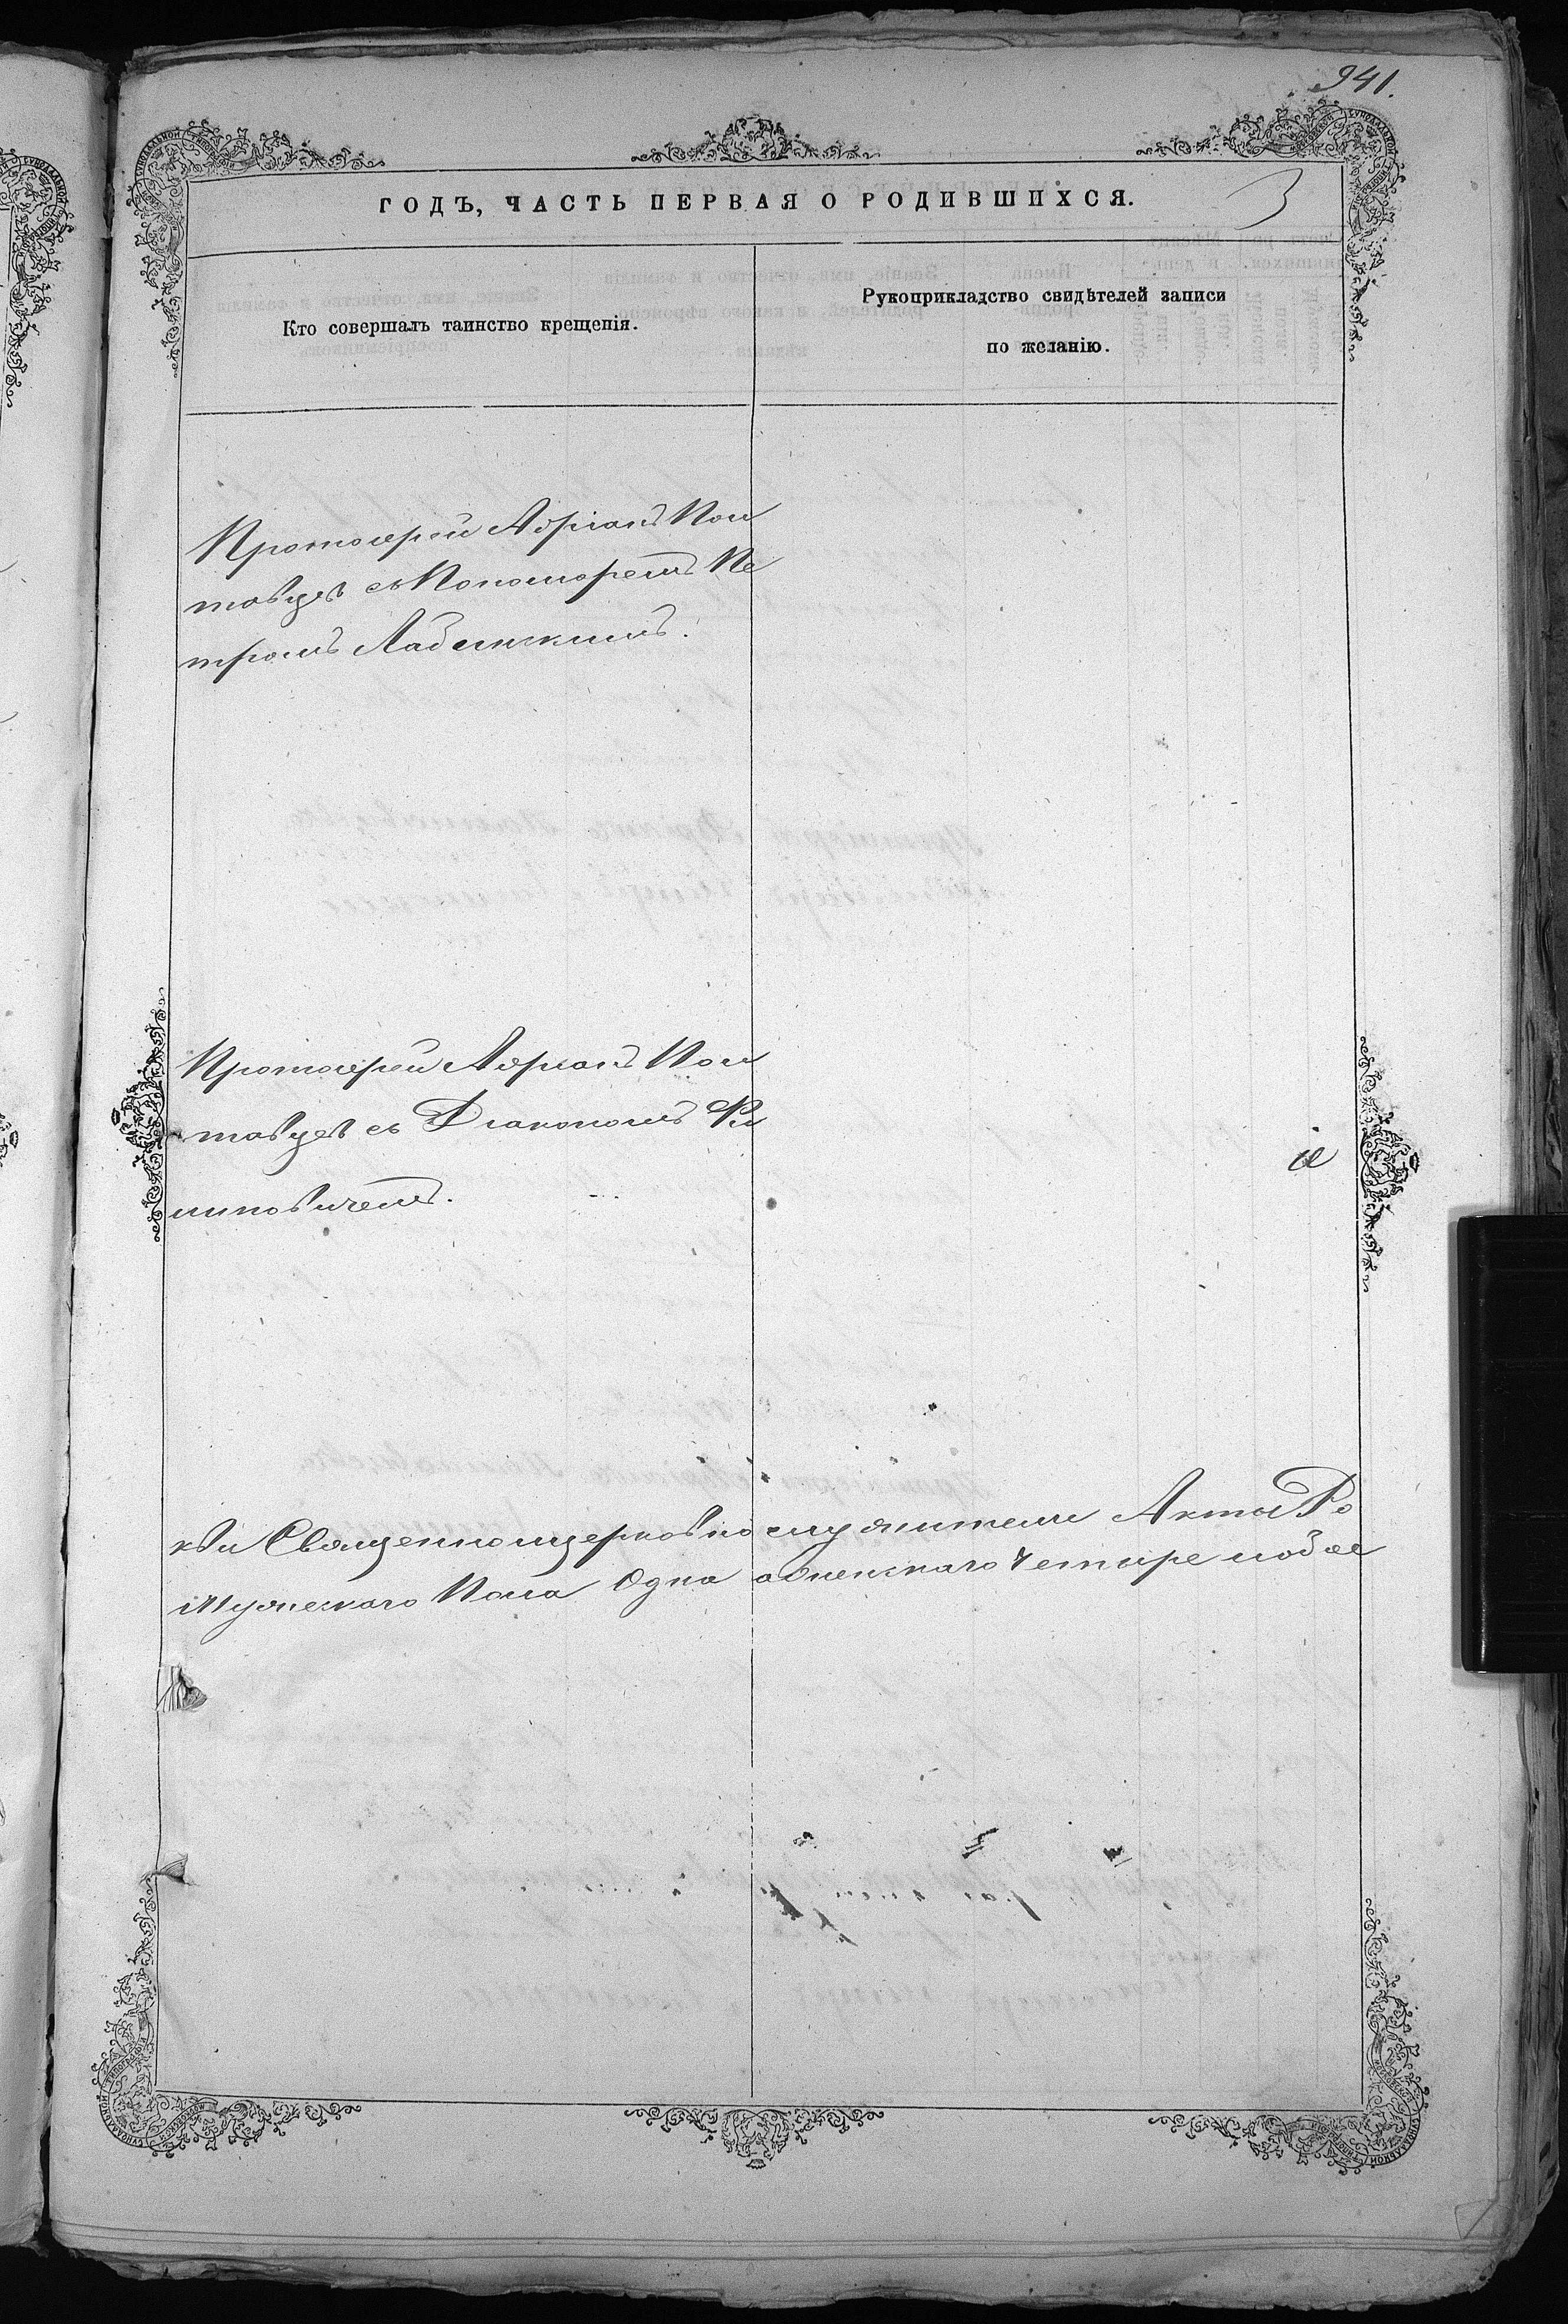 941.
ГОДЪ, ЧАСТЬ ПЕРВАЯ О РОДИВШИХСЯ.
3
Кто совершалъ таинство крещенія.
Рукоприкладство свидѣтелей записи
по желанію.
Протоіерей Адріанъ Пол
тавцев съ Пономоремъ Пе
тромъ Лабинскимъ.
Протоіерей Адріанъ Пол
тавцев съ Діакономъ Фи
липовичемъ.
кви Священноцерковнослужители Акты Ро
Мужескаго Пола Одна а женскаго Четыре подъ